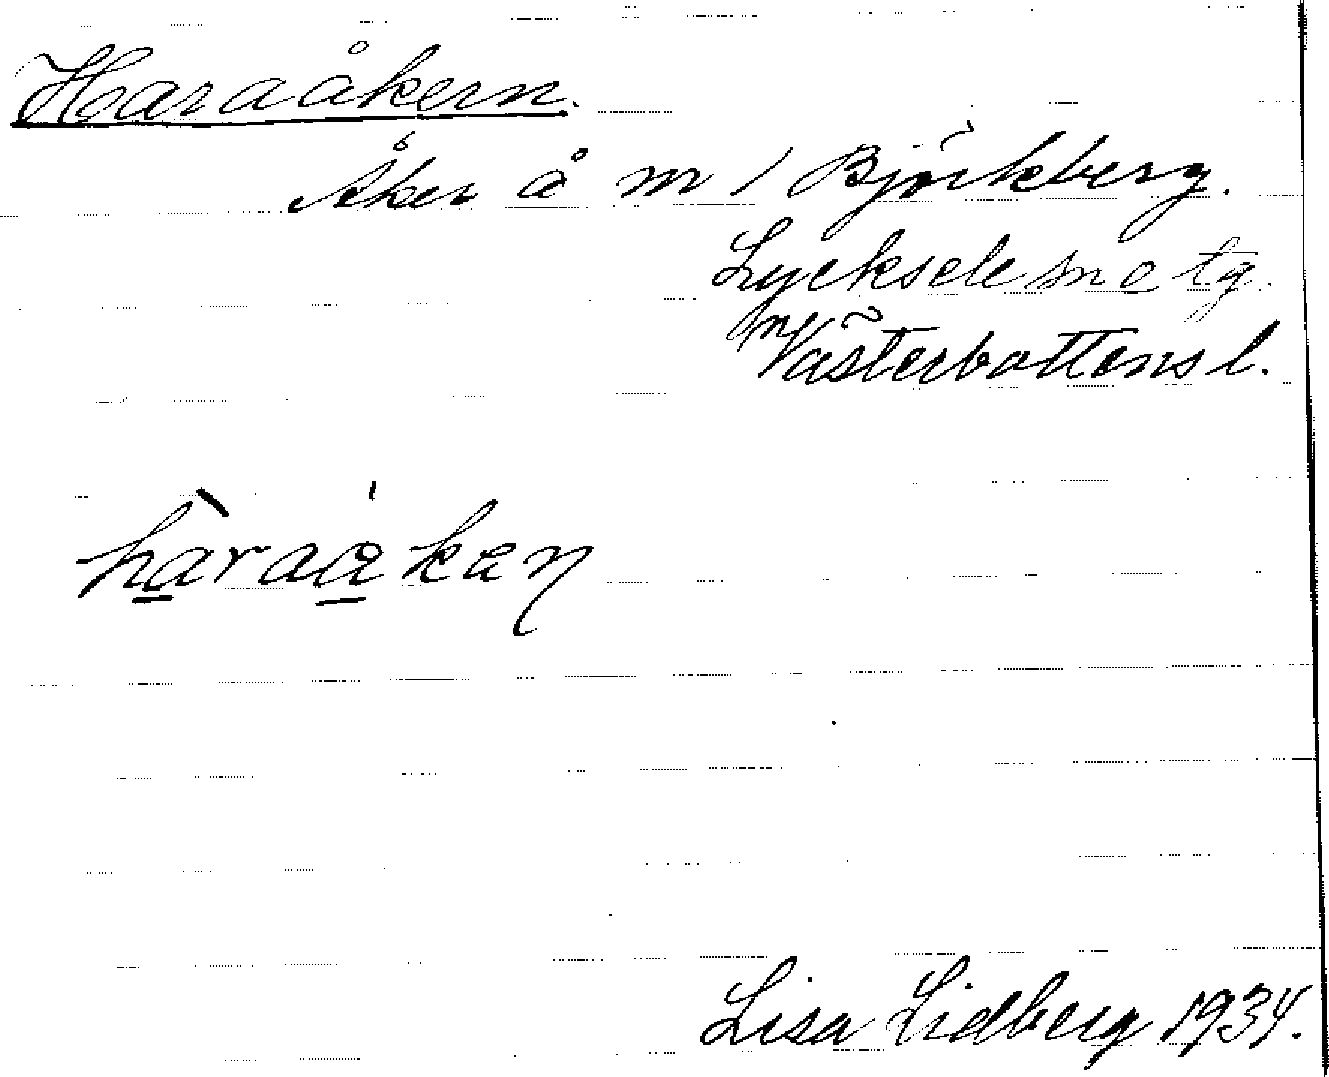 Haraåkern.
Åker å m / Björkberg.
Lycksele sn o tg.
Västerbottens l.
haraåken
Lisa Lidberg 1934.